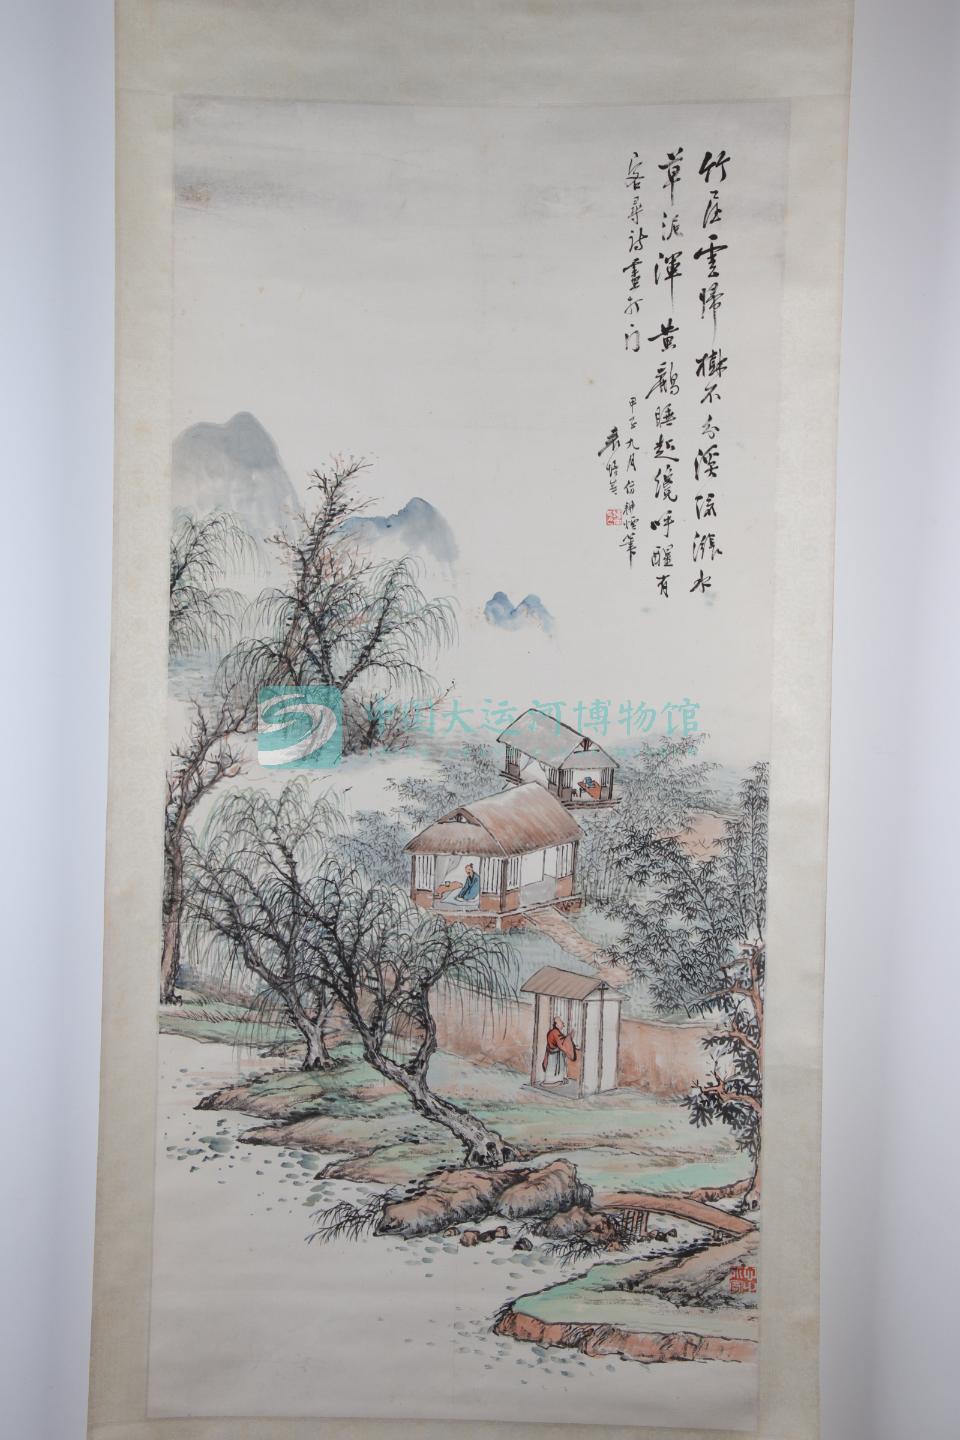 竹屋雲歸樹不分溪添漲水
草泥渾黃鸝睡起儂呼醒有
客尋詩畫打门
甲子九月仿耕煙筆
中国大运河博物馆